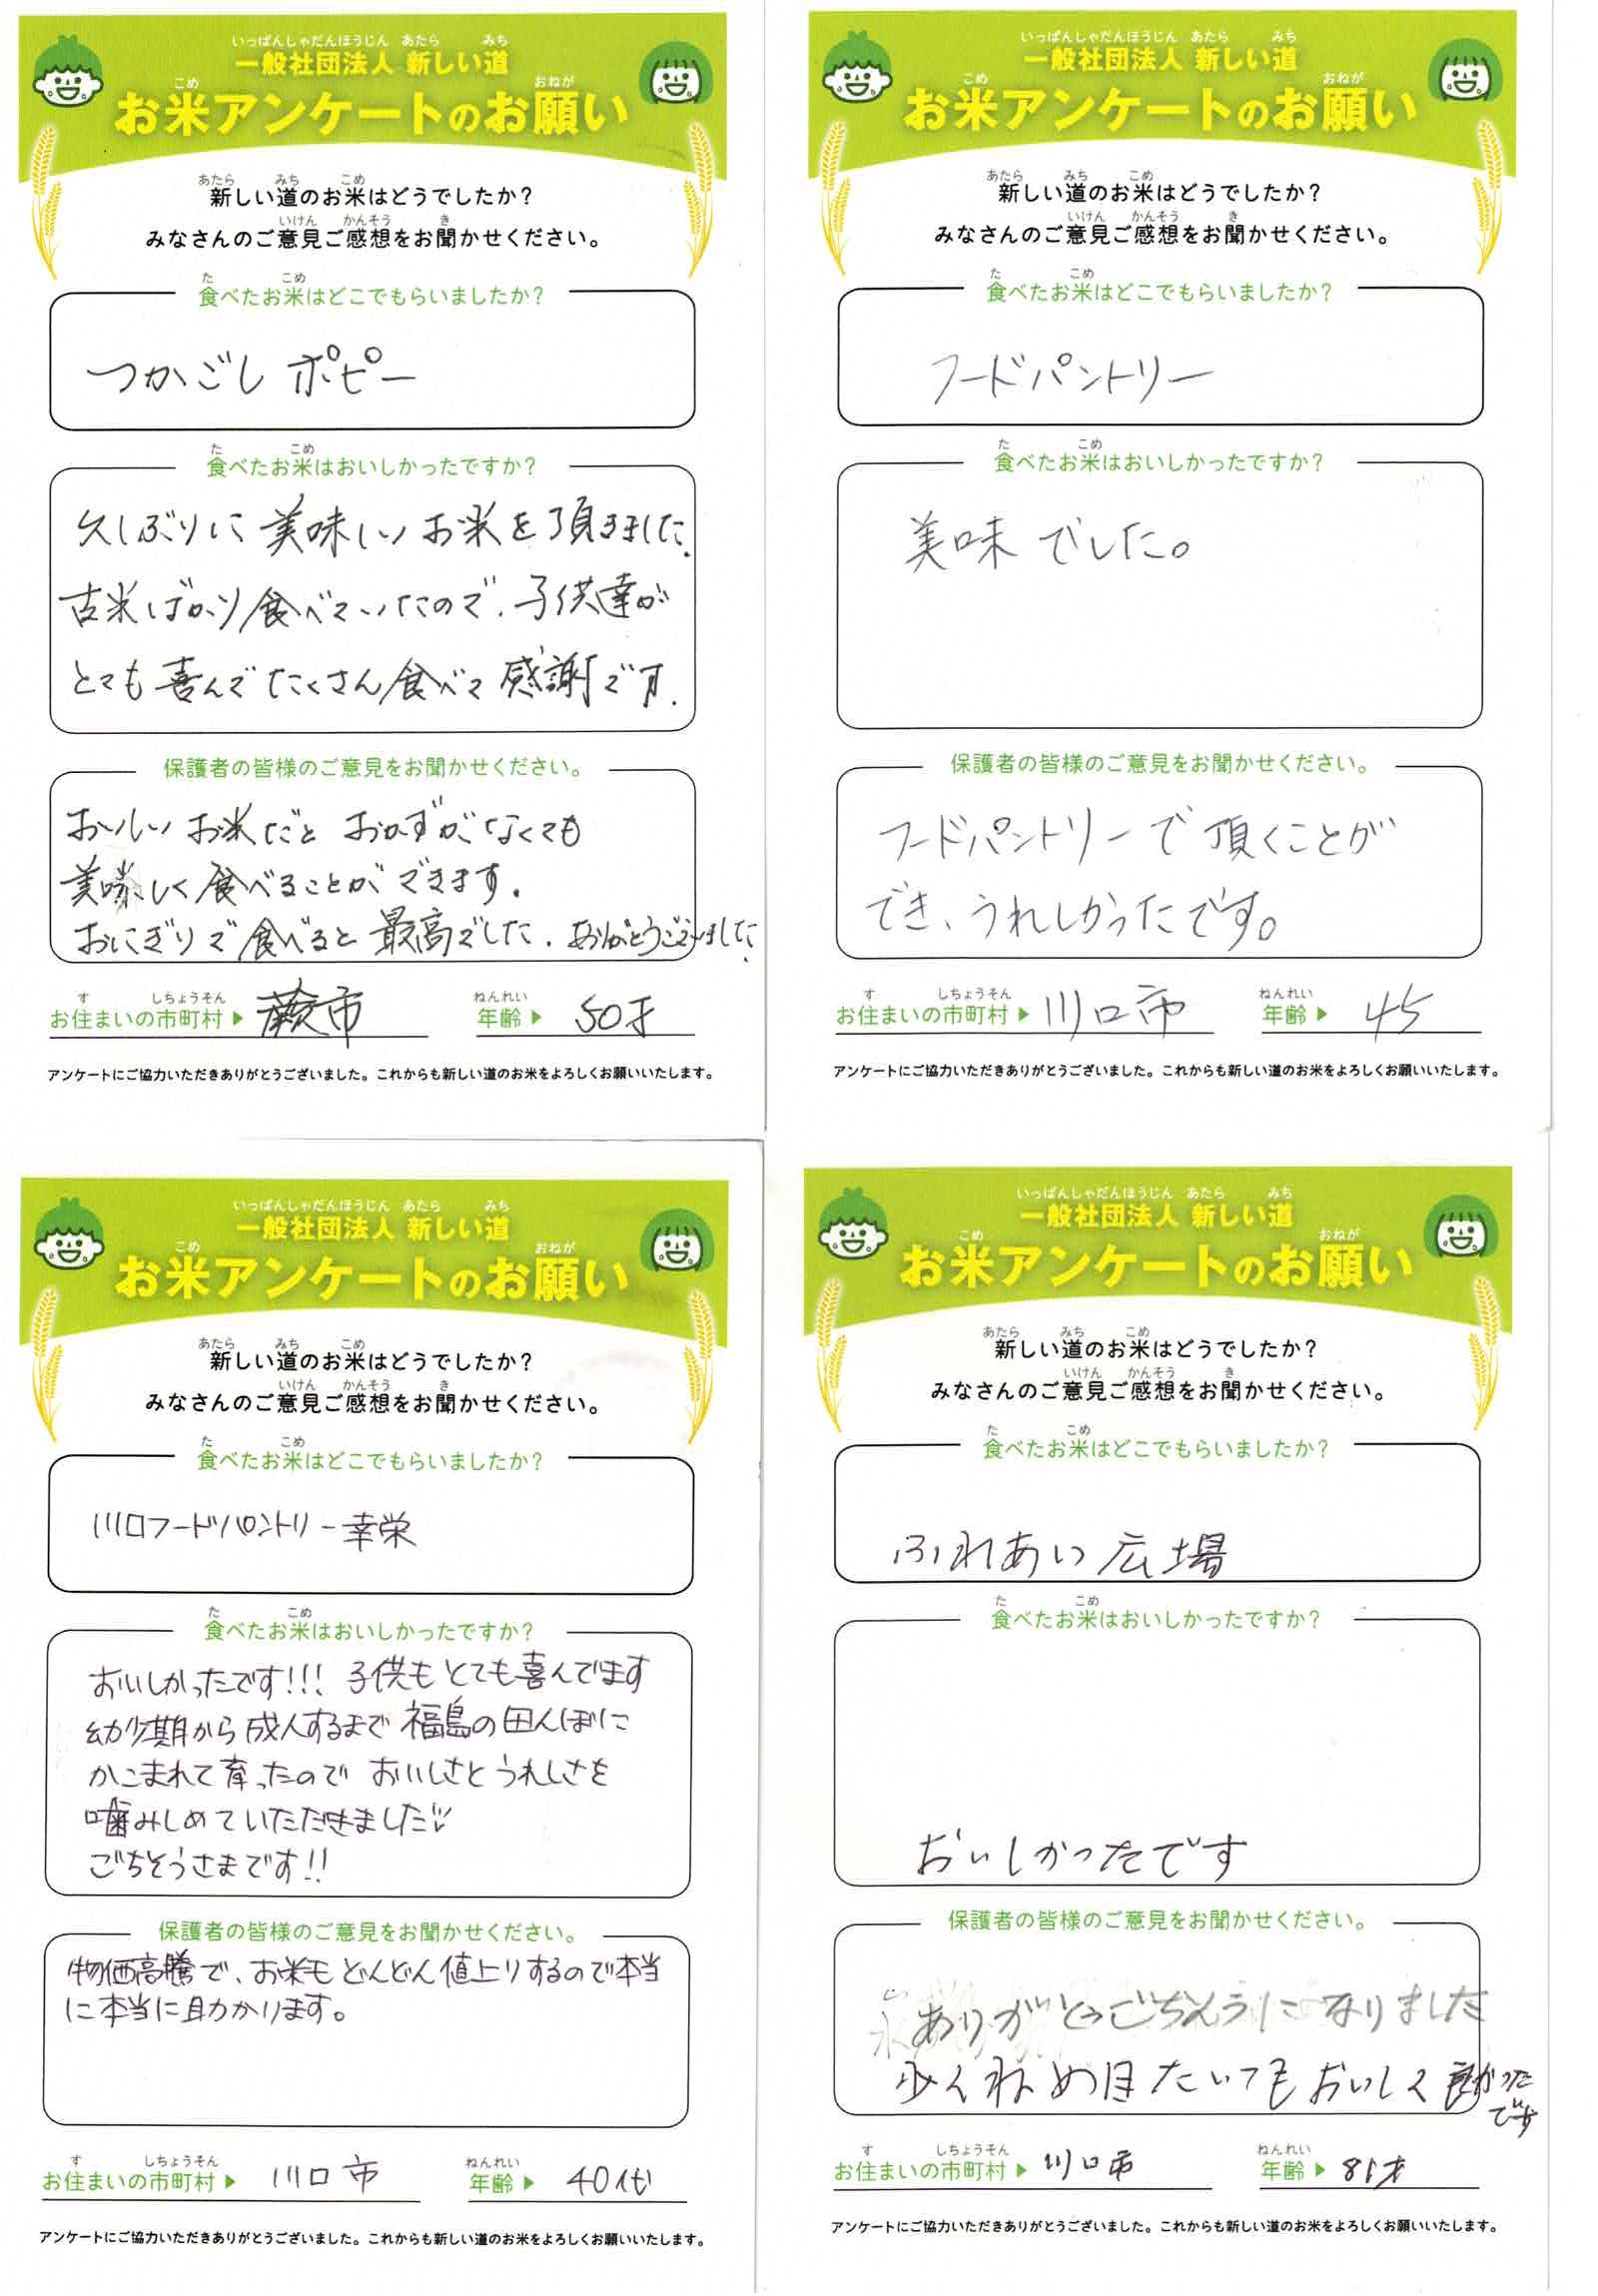 いっぱんしゃだんほうじん あたら みち
一般社団法人 新しい道
こめ おねが
お米アンケートのお願い
あたら みち こめ
新しい道のお米はどうでしたか？
いけん かんそう き
みなさんのご意見ご感想をお聞かせください。
た こめ
食べたお米はどこでもらいましたか？
つかごし ポピー
た こめ
食べたお米はおいしかったですか？
久しぶりに美味しいお米を頂きました.
古米ばかり食べていたので.子供達が
とても喜んでたくさん食べて感謝です.
保護者の皆様のご意見をお聞かせください。
おいしいお米だと おかずがなくても
美味しく食べることができます.
おにぎりで食べると最高でした.ありがとうございました.
す しちょうそん ねんれい
お住まいの市町村▶ 蕨市 年齢▶ 50才
アンケートにご協力いただきありがとうございました。これからも新しい道のお米をよろしくお願いいたします。
いっぱんしゃだんほうじん あたら みち
一般社団法人 新しい道
こめ おねが
お米アンケートのお願い
あたら みち こめ
新しい道のお米はどうでしたか？
いけん かんそう き
みなさんのご意見ご感想をお聞かせください。
た こめ
食べたお米はどこでもらいましたか？
フードパントリー
た こめ
食べたお米はおいしかったですか？
美味でした。
保護者の皆様のご意見をお聞かせください。
フードパントリーで頂くことが
でき、うれしかったです。
す しちょうそん ねんれい
お住まいの市町村▶ 川口市 年齢▶ 45
アンケートにご協力いただきありがとうございました。これからも新しい道のお米をよろしくお願いいたします。
いっぱんしゃだんほうじん あたら みち
一般社団法人 新しい道
こめ おねが
お米アンケートのお願い
あたら みち こめ
新しい道のお米はどうでしたか？
いけん かんそう き
みなさんのご意見ご感想をお聞かせください。
た こめ
食べたお米はどこでもらいましたか？
川口フードパントリー幸栄
た こめ
食べたお米はおいしかったですか？
おいしかったです!!! 子供もとても喜んでます
幼少期から成人するまで福島の田んぼに
かこまれて育ったので おいしさとうれしさを
噛みしめていただきました
ごちそうさまです!!
保護者の皆様のご意見をお聞かせください。
物価高騰で、お米もどんどん値上りするので本当
に本当に助かります。
す しちょうそん ねんれい
お住まいの市町村▶ 川口市 年齢▶ 40代
アンケートにご協力いただきありがとうございました。これからも新しい道のお米をよろしくお願いいたします。
いっぱんしゃだんほうじん あたら みち
一般社団法人 新しい道
こめ おねが
お米アンケートのお願い
あたら みち こめ
新しい道のお米はどうでしたか？
いけん かんそう き
みなさんのご意見ご感想をお聞かせください。
た こめ
食べたお米はどこでもらいましたか？
ふれあい広場
た こめ
食べたお米はおいしかったですか？
おいしかったです
保護者の皆様のご意見をお聞かせください。
ありがとうごちそうになりました
たいてもおいしく良かった
です
す しちょうそん ねんれい
お住まいの市町村▶ 川口市 年齢▶ 81才
アンケートにご協力いただきありがとうございました。これからも新しい道のお米をよろしくお願いいたします。